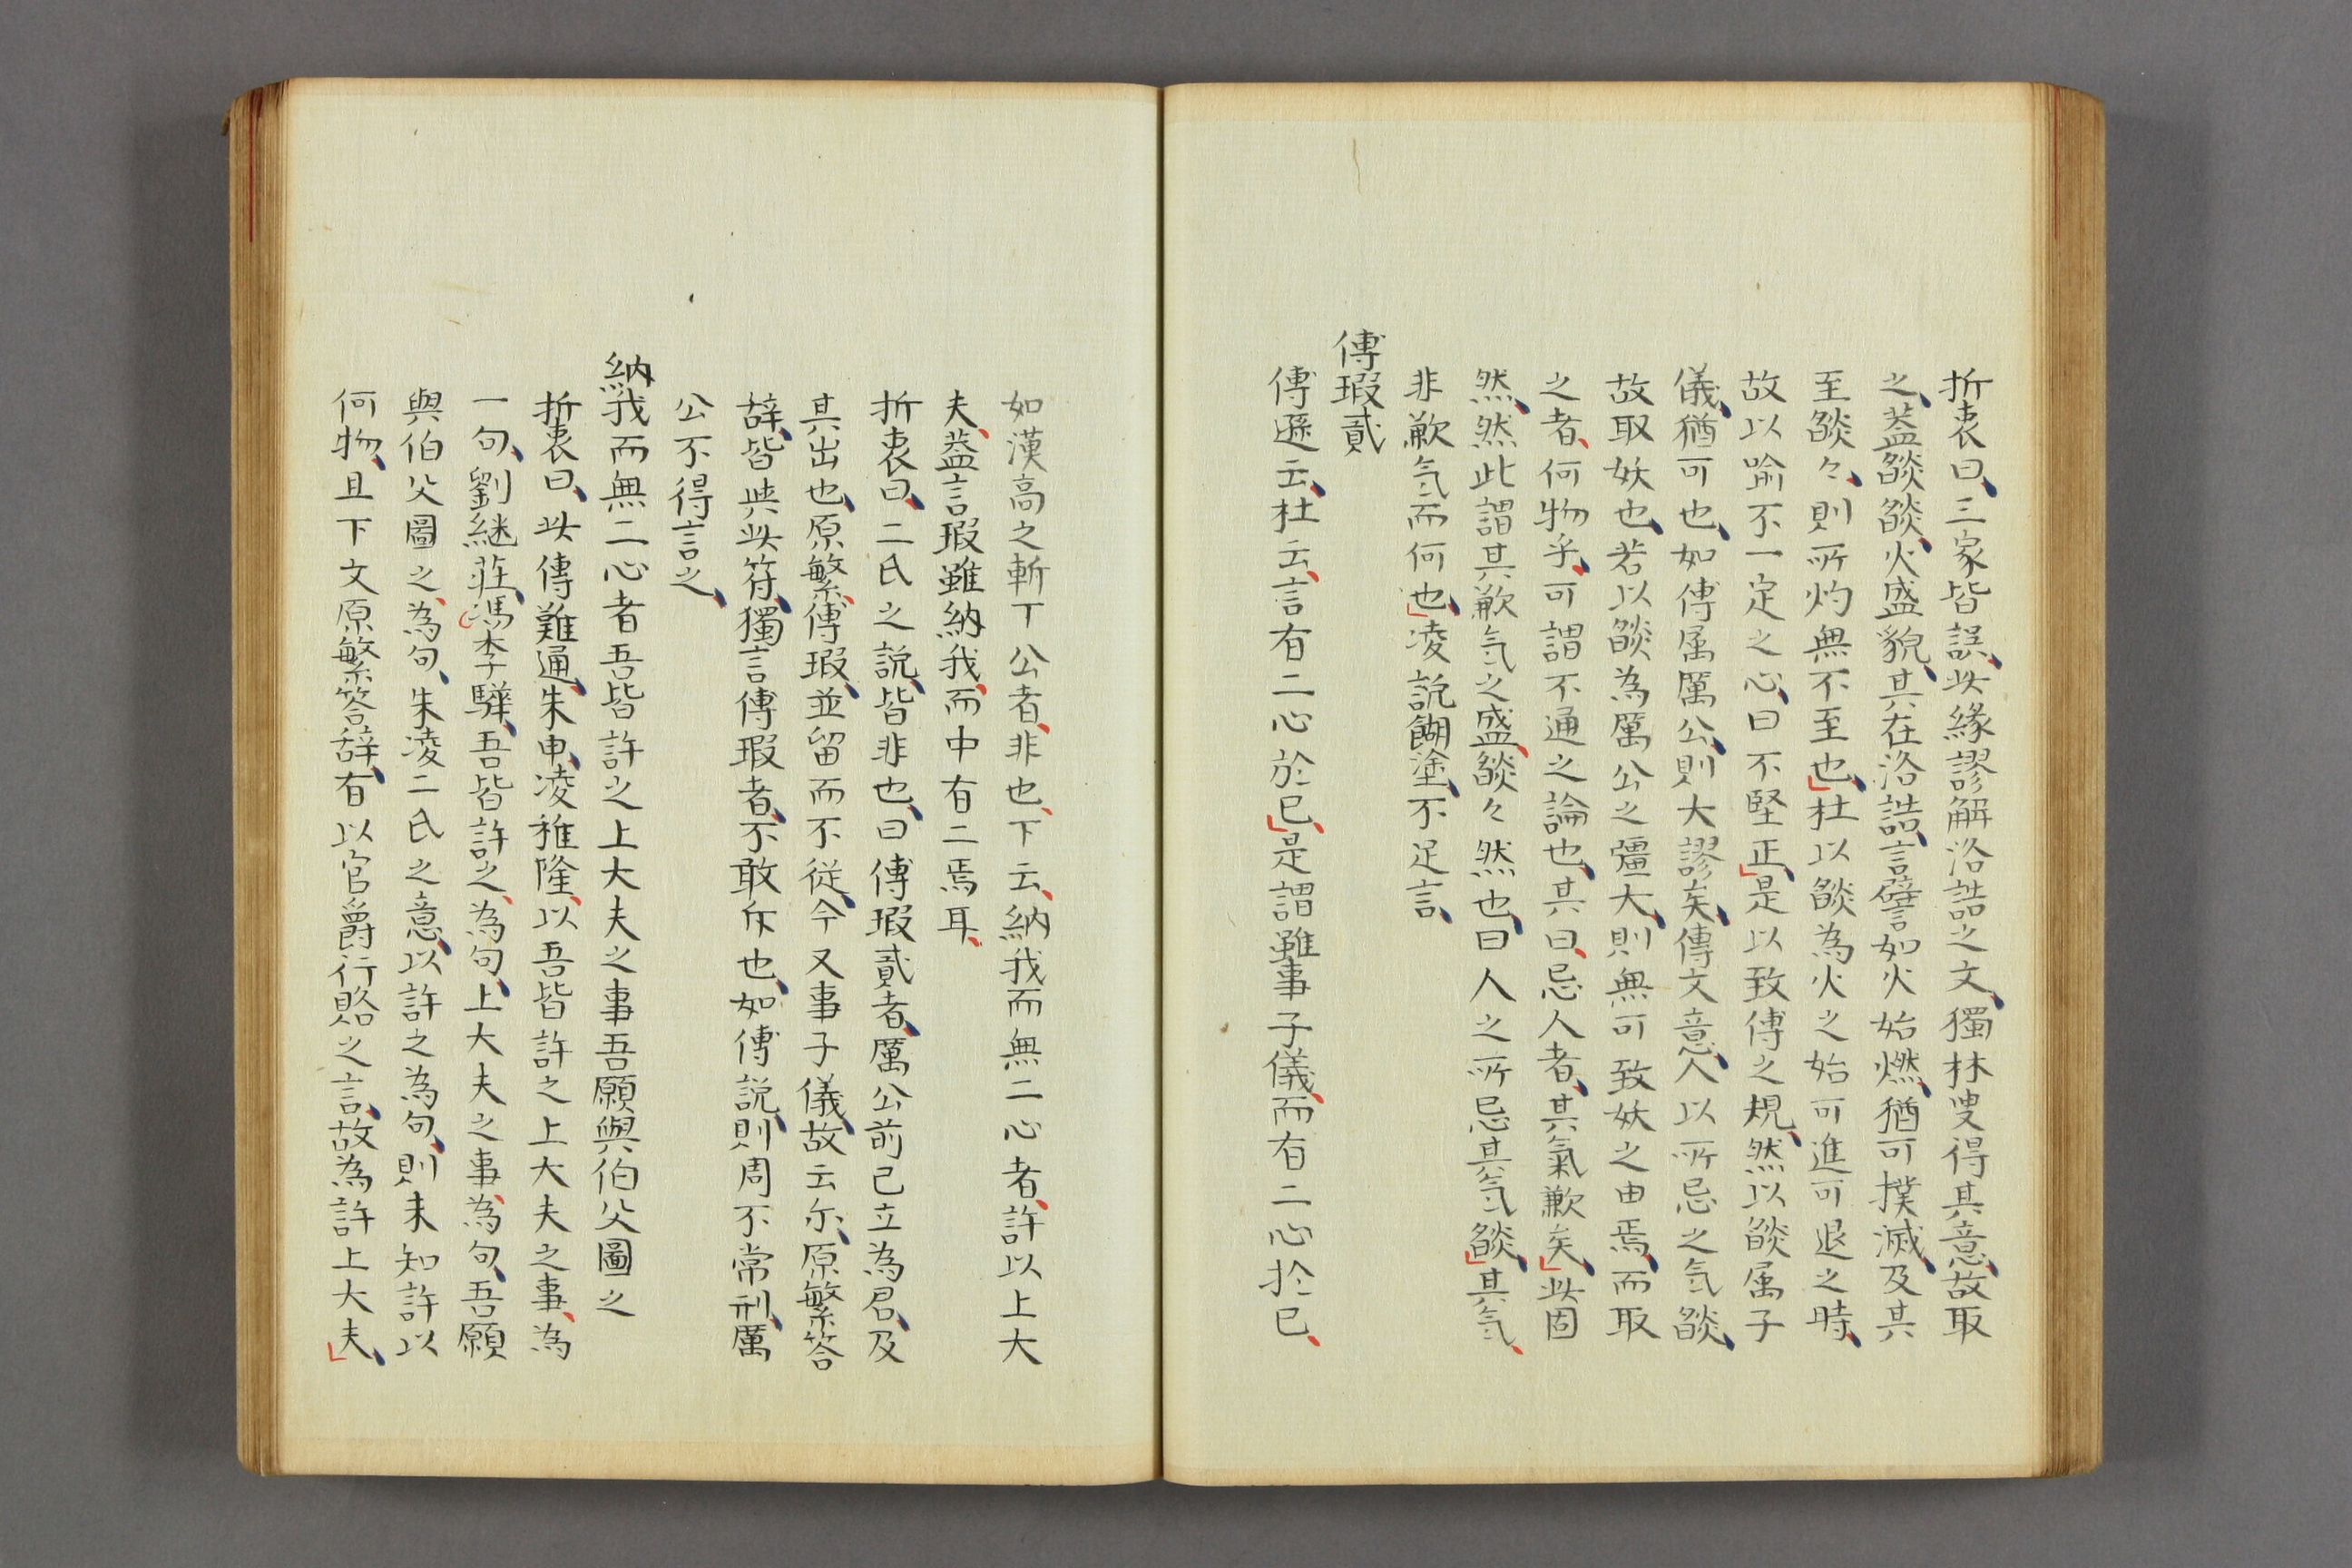 折衷曰、三家皆誤、此緣謬解洛誥之文、獨林叟得其意、故取
之、蓋燄燄、火盛貌、其在洛誥、言譬如火始燃、猶可撲滅、及其
至燄々、則所灼無不至也、」杜以燄為火之始可進可退之時、
故以喻不一定之心、曰不堅正、」是以致傅之規、然以燄属子
儀、猶可也、如傅属厲公、則大謬矣、傳文意、人以所忌之気燄、
故取妖也、若以燄為厲公之彊大、則無可致妖之由焉、而取
之者、何物乎、可謂不通之論也、其曰、忌人者、其氣歉矣、」此固
然、然此謂其歉気之盛、燄々然也、曰人之所忌其気燄、」其気、
非歉気而何也、」凌説餬塗、不足言、
傅瑕貳
傅遜云、杜云、言有二心於己、」是謂雖事子儀、而有二心於己、
如漢高之斬丁公者、非也、下云、納我而無二心者、許以上大
夫、蓋言瑕雖納我、而中有二焉耳、
折衷曰、二氏之説、皆非也、曰傅瑕貳者、厲公前已立為君、及
其出也、原繁、傅瑕、並留而不従、今又事子儀、故云尓、原繁答
辞、皆與此符、獨言傅瑕者、不敢斥也、如傅説、則周不常刑、厲
公不得言之、
納我而無二心者吾皆許之上大夫之事吾願與伯父圖之
折衷曰、此傳難通、朱申、凌稚隆、以吾皆許之上大夫之事、為
一句、劉継莊、馮李驊、吾皆許之、為句、上大夫之事、為句、吾願
與伯父圖之、為句、朱凌二氏之意、以許之為句、則未知許以
何物、且下文原繁答辞、有以官爵行賂之言、故為許上大夫、」